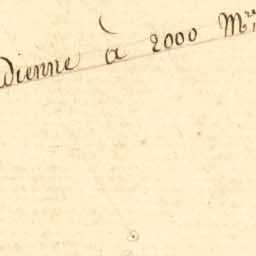 dienne à 2000 Mre